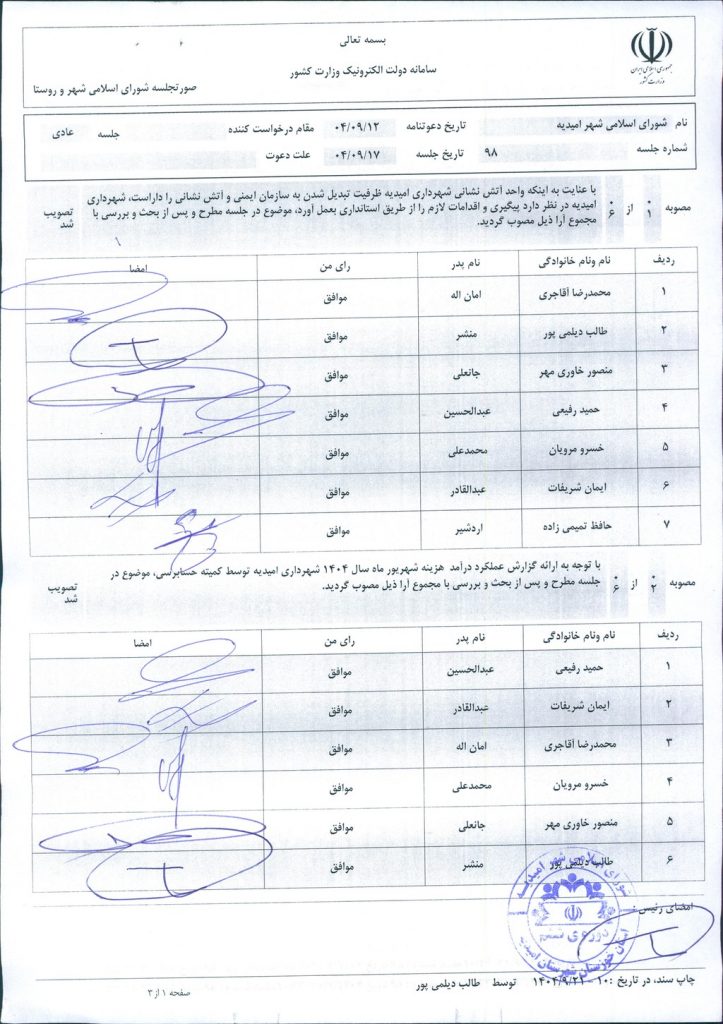 بسمه تعالی
سامانه دولت الکترونیک وزارت کشور
صورتجلسه شورای اسلامی شهر و روستا
جمهوری اسلامی ایران
وزارت کشور
نام شورای اسلامی شهر امیدیه تاریخ دعوتنامه ۰۴/۰۹/۱۲ مقام درخواست کننده جلسه عادی
شماره جلسه ۹۸ تاریخ جلسه ۰۴/۰۹/۱۷ علت دعوت
مصوبه ۰۱ از ۰۶ با عنایت به اینکه واحد آتش نشانی شهرداری امیدیه ظرفیت تبدیل شدن به سازمان ایمنی و آتش نشانی را داراست، شهرداری
امیدیه در نظر دارد پیگیری و اقدامات لازم را از طریق استانداری بعمل آورد، موضوع در جلسه مطرح و پس از بحث و بررسی با
مجموع آرا ذیل مصوب گردید. تصویب شد
ردیف نام ونام خانوادگی نام پدر رای من امضا
۱ محمدرضا آقاجری امان اله موافق
۲ طالب دیلمی پور منشر موافق
۳ منصور خاوری مهر جانعلی موافق
۴ حمید رفیعی عبدالحسین موافق
۵ خسرو مرویان محمدعلی موافق
۶ ایمان شریفات عبدالقادر موافق
۷ حافظ تمیمی زاده اردشیر موافق
مصوبه ۰۲ از ۰۶ با توجه به ارائه گزارش عملکرد درآمد هزینه شهریور ماه سال ۱۴۰۴ شهرداری امیدیه توسط کمیته حسابرسی، موضوع در
جلسه مطرح و پس از بحث و بررسی با مجموع آرا ذیل مصوب گردید. تصویب شد
ردیف نام ونام خانوادگی نام پدر رای من امضا
۱ حمید رفیعی عبدالحسین موافق
۲ ایمان شریفات عبدالقادر موافق
۳ محمدرضا آقاجری امان اله موافق
۴ خسرو مرویان محمدعلی موافق
۵ منصور خاوری مهر جانعلی موافق
۶ طالب دیلمی پور منشر موافق
امضای رئیس :
شورای اسلامی شهر امیدیه
دوره ی ششم
استان خوزستان شهرستان امیدیه
چاپ سند، در تاریخ :۱۰ - ۱۴۰۴/۹/۲۱ توسط طالب دیلمی پور
صفحه ۱ از ۳